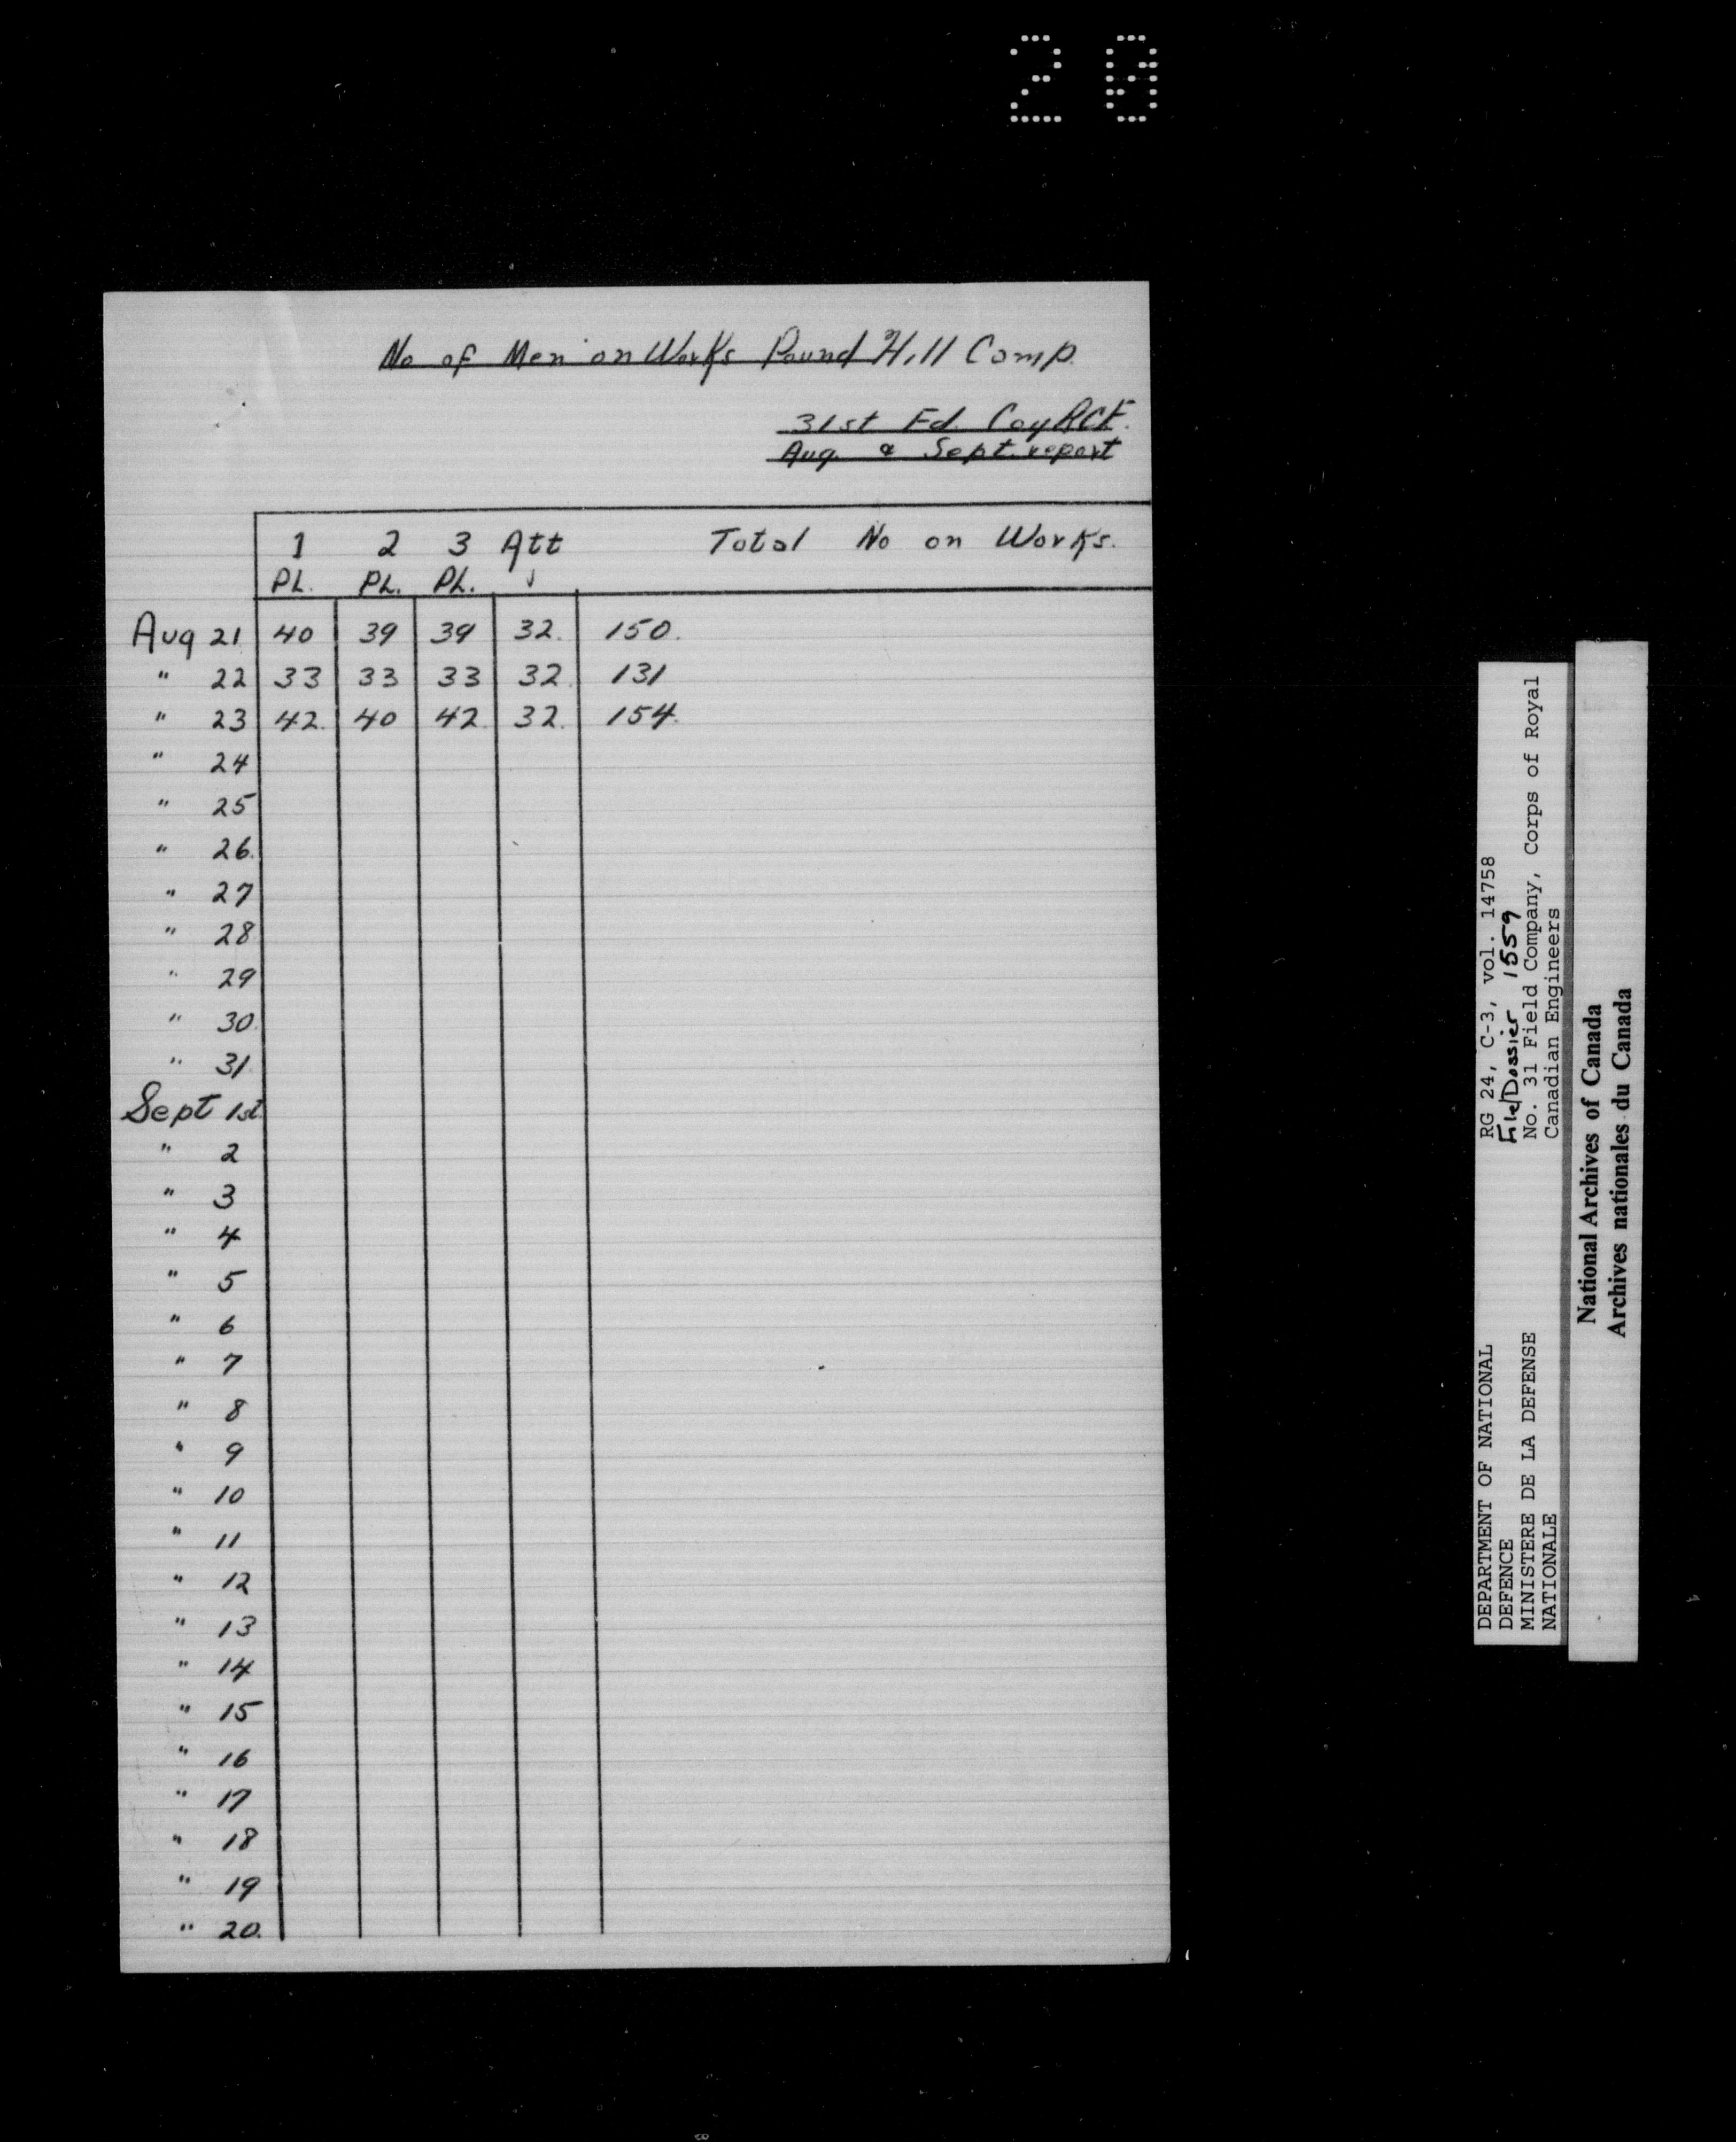 20
No of Men on Works Pound Hill Comp.
31st Fd. Coy RCE.
Aug. & Sept. report
1 2 3 Att Total No on Works.
PL. PL. PL. ↓
Aug 21 40 39 39 32. 150.
" 22 33 33 33 32. 131
" 23 42. 40 42. 32. 154.
" 24
" 25
" 26.
" 27
" 28
" 29
" 30.
" 31
Sept 1st.
" 2
" 3
" 4
" 5
" 6
" 7
" 8
" 9
" 10
" 11
" 12
" 13
" 14
" 15
" 16
" 17
" 18
" 19
" 20.
DEPARTMENT OF NATIONAL RG 24, C-3, vol. 14758
DEFENCE File/Dossier 1559
MINISTERE DE LA DEFENSE No. 31 Field Company, Corps of Royal
NATIONALE Canadian Engineers
National Archives of Canada
Archives nationales du Canada